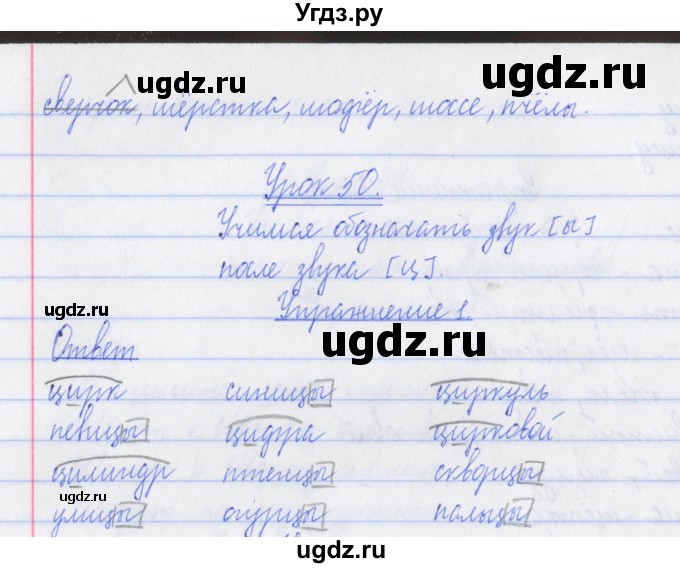 Угдз.ру
ugdz.ru ugdz.ru
сверчок, шёрстка, шофёр, шоссе, пчёлы.
Урок 50.
Учимся обозначать звук [ы]
после звука [ц].
ugdz.ru
Упражнение 1.
ugdz.ru
Ответ
цирк синицы циркуль
певицы цифра цирковой
цилиндр птенцы скворцы
ugdz.ru
улицы огурцы пальцы
ugdz.ru
ugdz.ru